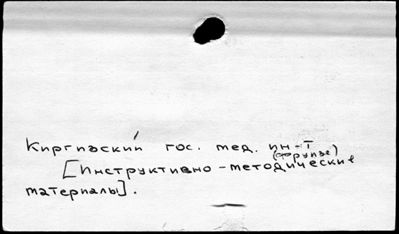 Киргизский гос. мед. ин-т
(Фрунзе)
[Инструктивно-методические
материалы].